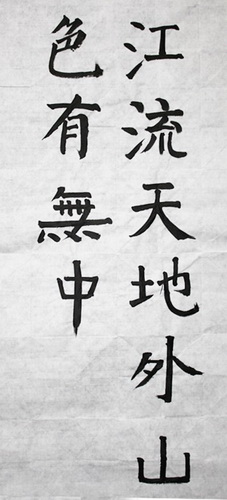 江流天地外山
色有無中